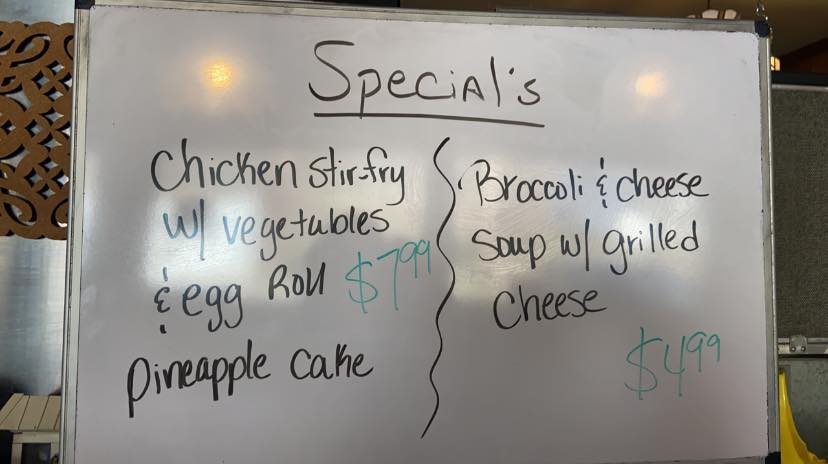 Special's
Chicken stir-fry
w/ vegetables
& egg Roll $7.99
pineapple cake
Broccoli & cheese
Soup w/ grilled
Cheese
$4.99